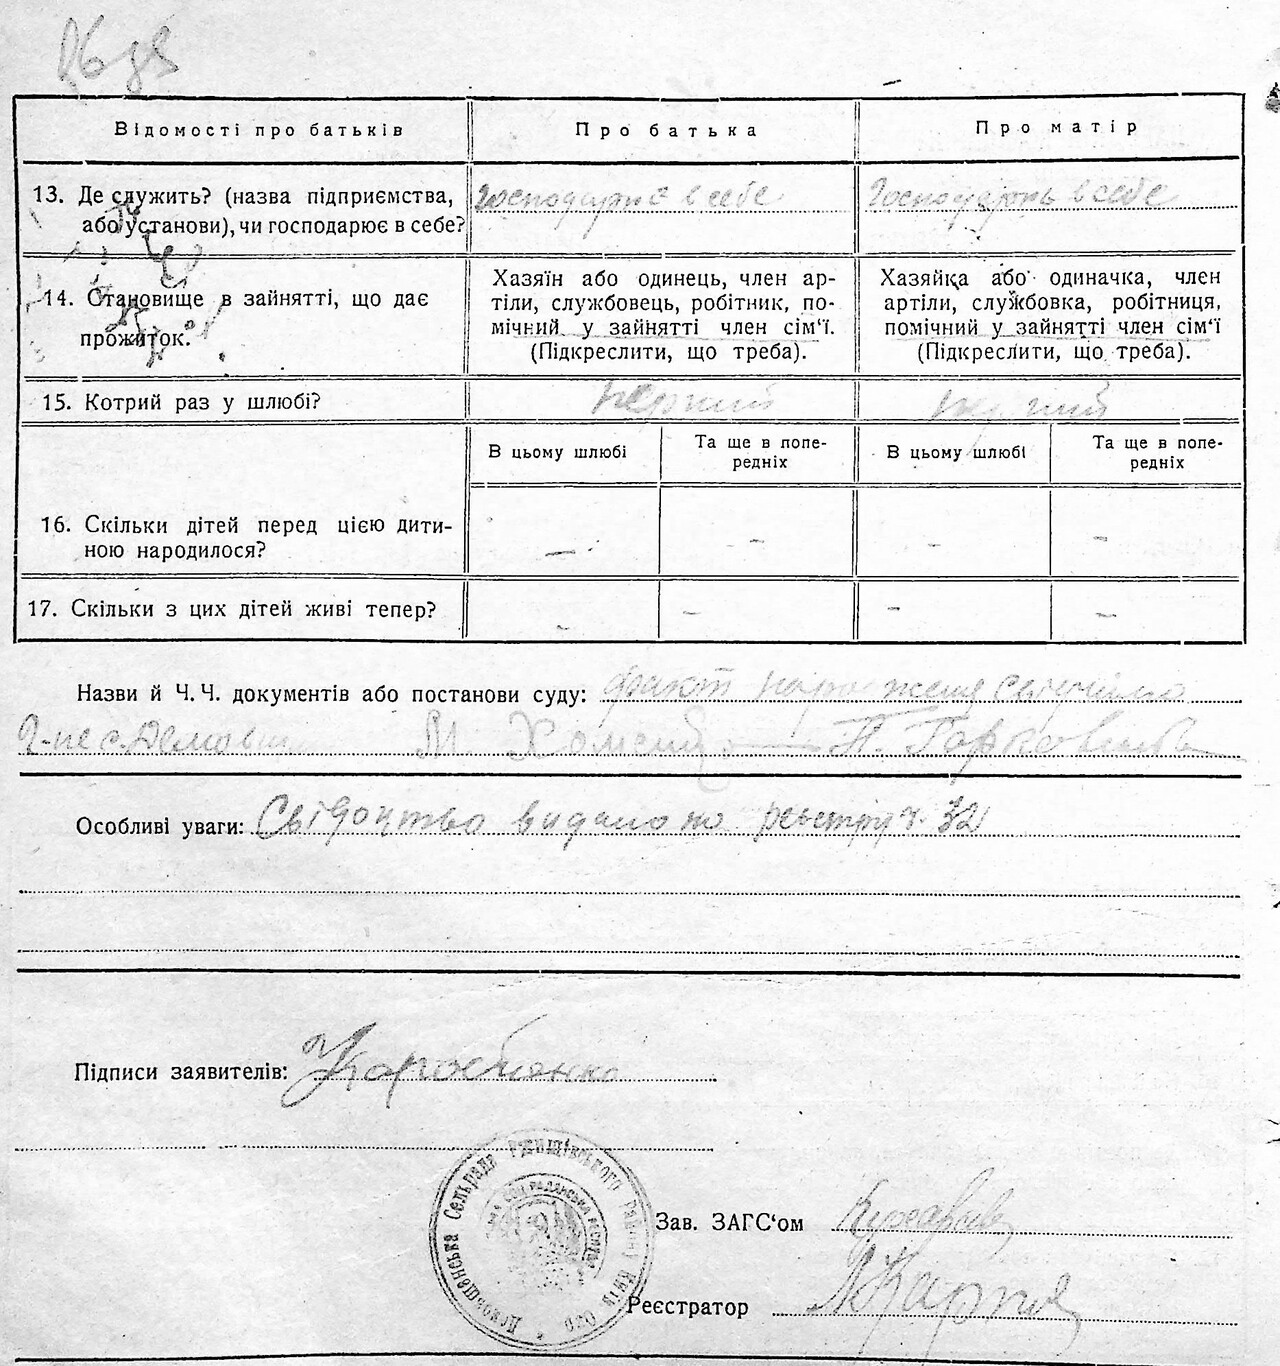 Відомості про батьків
Про батька
Про матір
13. Де служить? (назва підприємства,
або установи), чи господарює в себе?
Господарює в себе
Господарює в себе
14. Становище в зайнятті, що дає
прожиток.
Хазяїн або одинець, член ар-
тіли, службовець, робітник, по-
мічний у зайнятті член сім'ї.
(Підкреслити, що треба).
Хазяйка або одиначка, член
артіли, службовка, робітниця,
помічний у зайнятті член сім'ї
(Підкреслити, що треба).
15. Котрий раз у шлюбі?
первий
первий
В цьому шлюбі
Та ще в попе-
редніх
В цьому шлюбі
Та ще в попе-
редніх
16. Скільки дітей перед цією дити-
ною народилося?
- - - -
17. Скільки з цих дітей живі тепер?
- - - -
Назви й Ч.Ч. документів або постанови суду: факт народження
М Хоменко П. Горковенко
Особливі уваги: Свідоцтво видано по реєстру ч. 32
Підписи заявителів: Коростенко
Сельрада Ржищівського району Київ Окр
Зав. ЗАГС'ом
Реєстратор